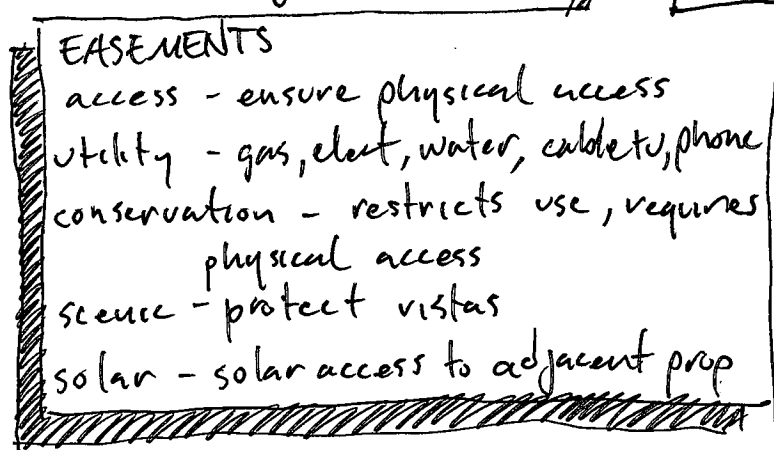 EASEMENTS
access - ensure physical access
utility - gas, elect, water, cabletv, phone
conservation - restricts use, requires
physical access
scenic - protect vistas
solar - solar access to adjacent prop